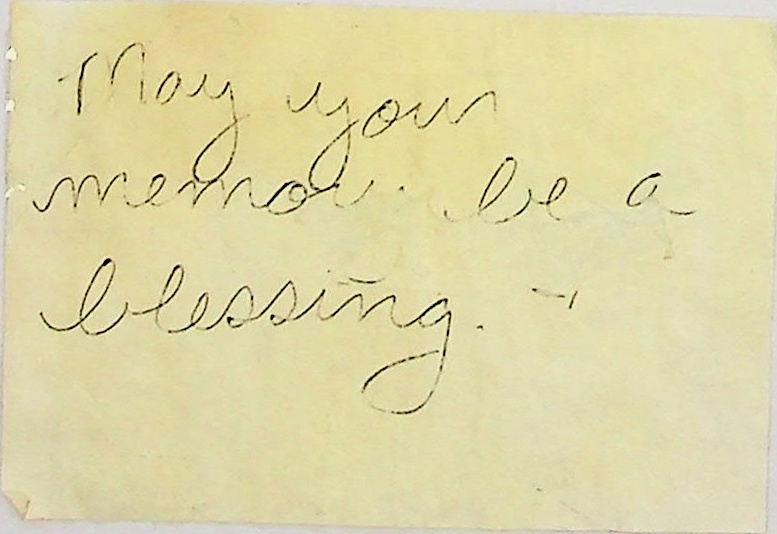 May your
memory be a
blessing.